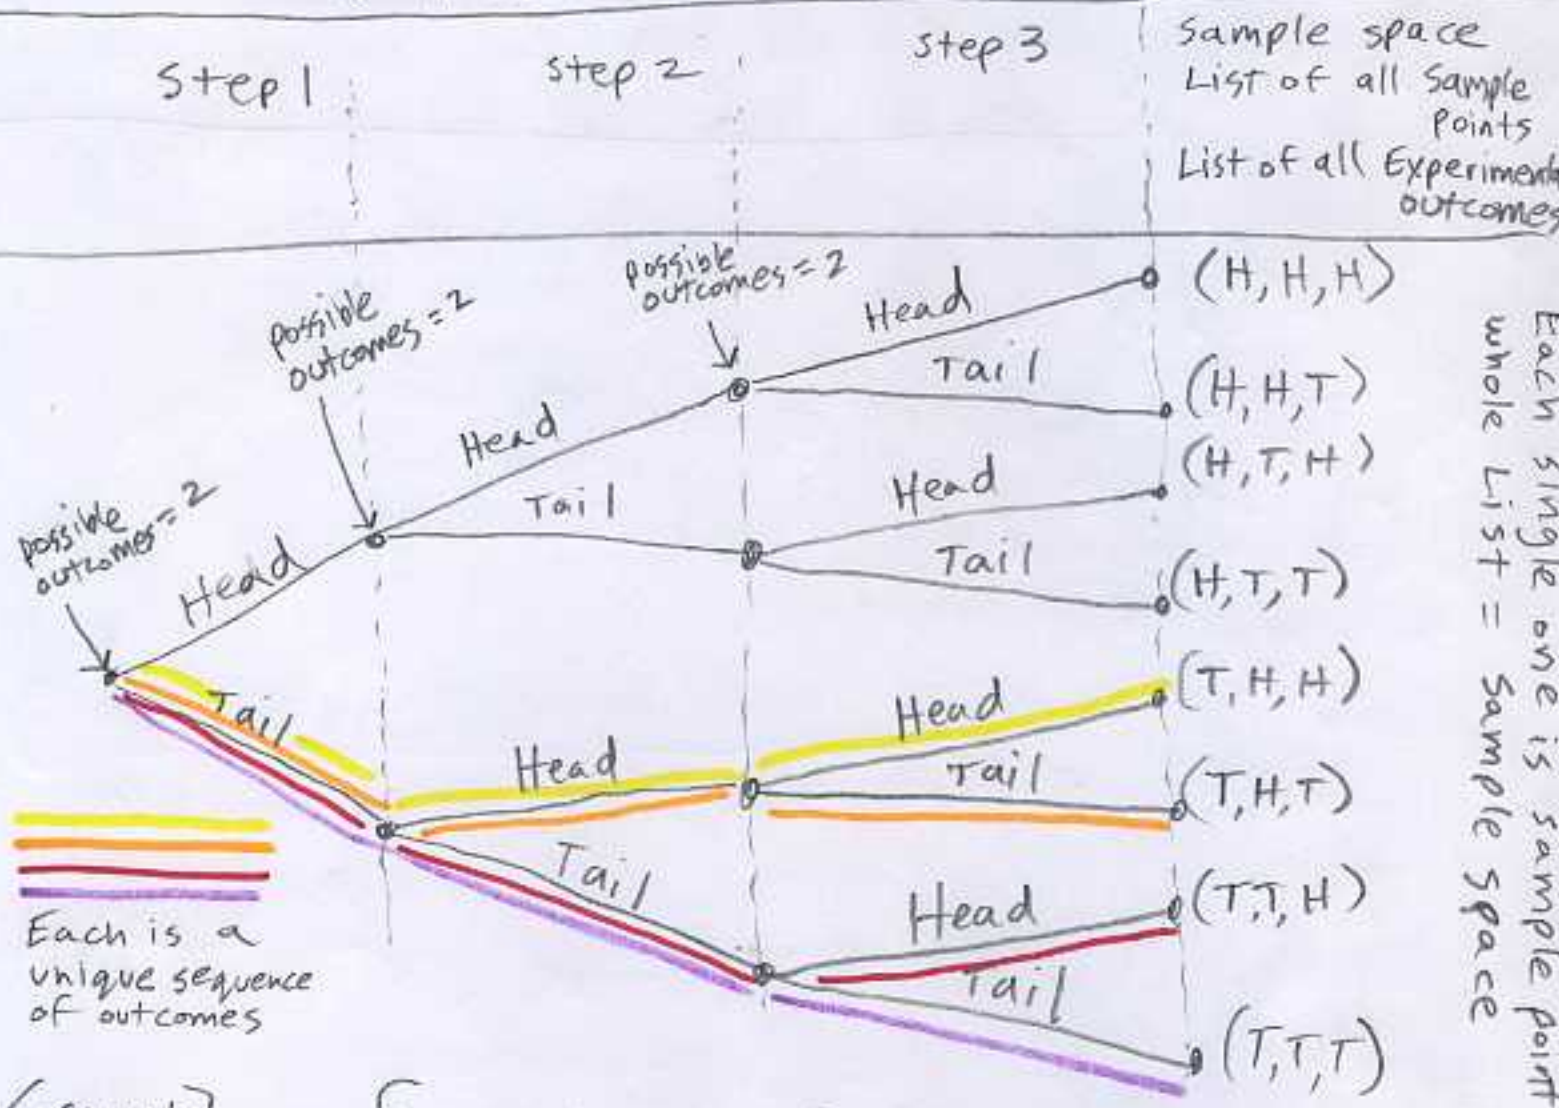 Step 1
Step 2
Step 3
Sample space
List of all Sample
Points
List of all Experimental
outcomes
possible
outcomes = 2
possible
outcomes = 2
possible
outcomes = 2
Head
Tail
Head
Tail
Head
Tail
Head
Tail
Head
Tail
Head
Tail
Head
Tail
(H, H, H)
(H, H, T)
(H, T, H)
(H, T, T)
(T, H, H)
(T, H, T)
(T, T, H)
(T, T, T)
Each single one is sample point
whole List = Sample space
Each is a
unique sequence
of outcomes